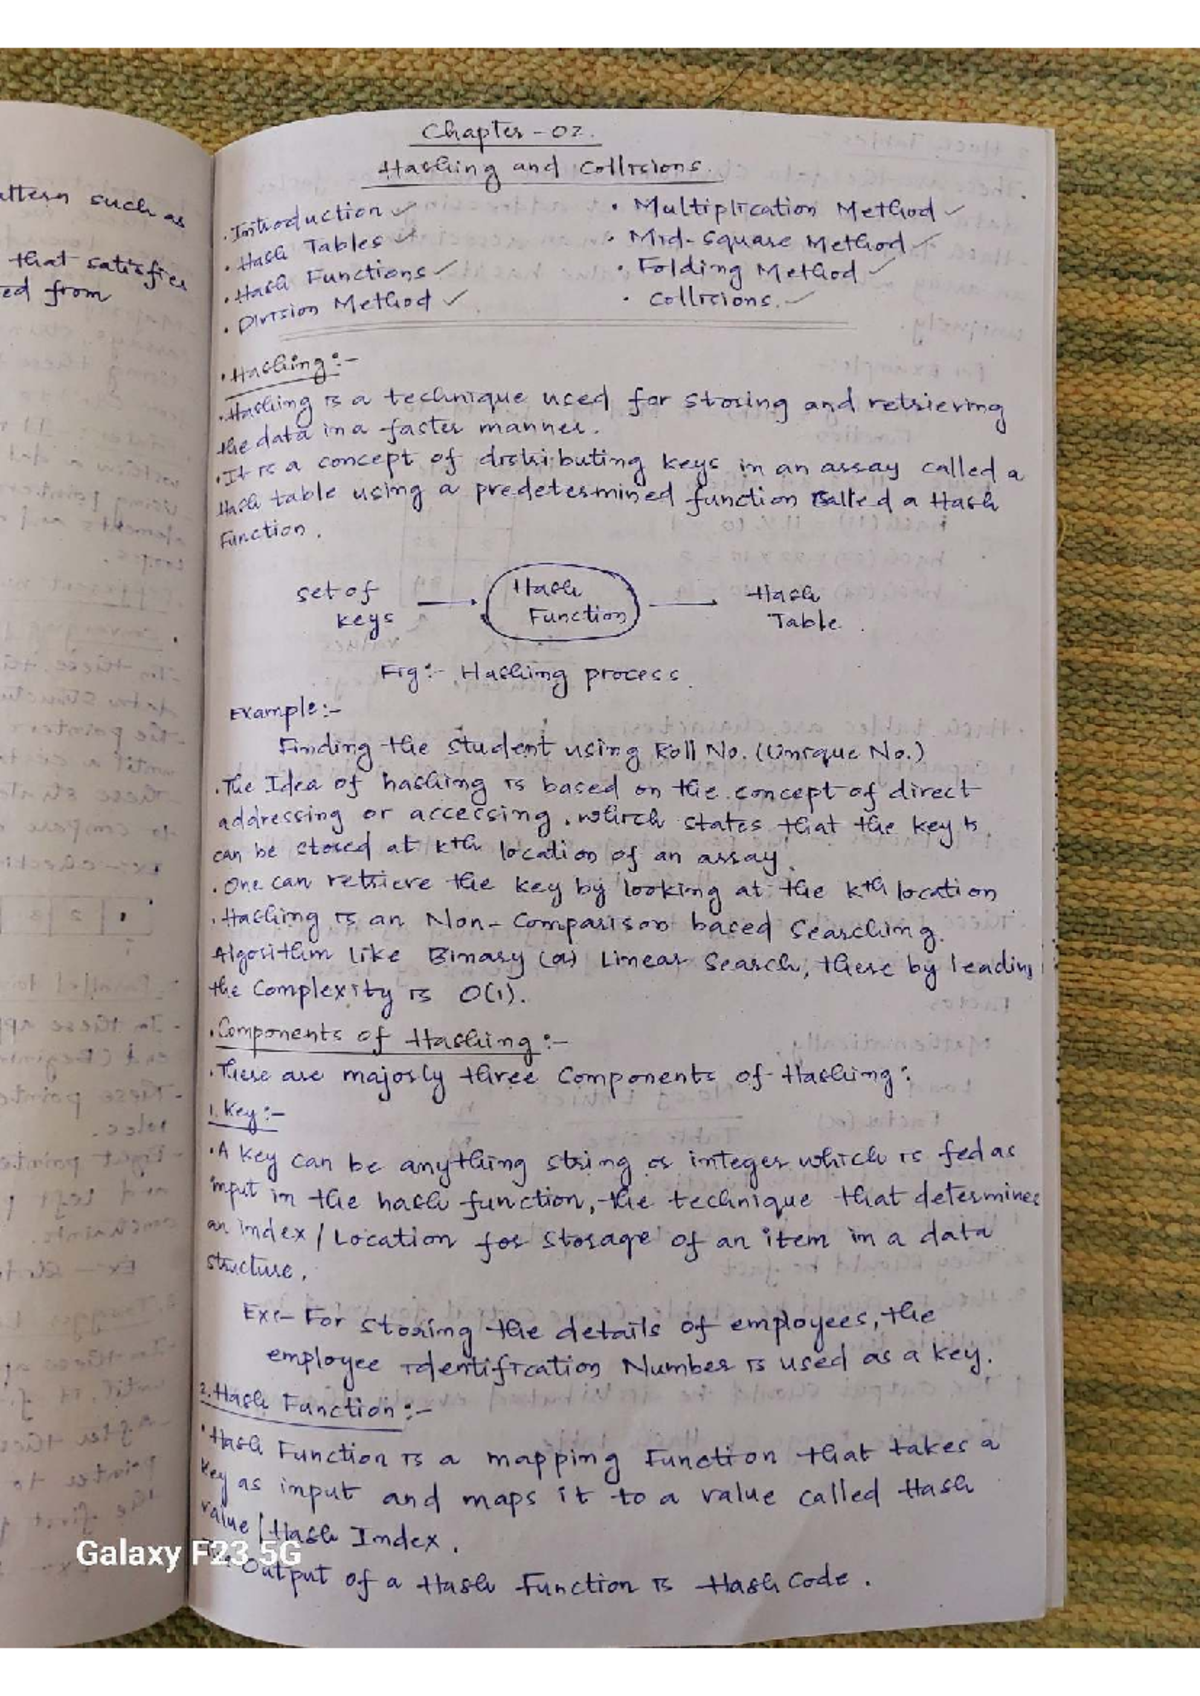 attern such as
that satisfies
ed from
Chapter - 02.
Hashing and Collisions.
• Introduction ✓
• Hash Tables ✓
• Hash Functions ✓
• Division Method ✓
• Multiplication Method ✓
• Mid-Square Method ✓
• Folding Method ✓
• Collisions. ✓
• Hashing :-
• Hashing is a technique used for storing and retrieving
the data in a faster manner.
• It is a concept of distributing keys in an array called a
Hash table using a predetermined function called a Hash
Function.
set of
keys
Hash
Function
Hash
Table.
Fig:- Hashing process.
Example:-
Finding the student using Roll No. (Unique No.)
• The Idea of hashing is based on the concept of direct
addressing or accessing. which states that the key is
can be stored at kth location of an array.
• One can retrieve the key by looking at the kth location
• Hashing is an Non-Comparison based Searching.
Algorithm like Binary (or) Linear Search, there by leading
the Complexity is O(1).
• Components of Hashing :-
• There are majorly three Components of Hashing:
1. Key :-
• A key can be anything string or integer which is fed as
input in the hash function, the technique that determines
an index / Location for storage of an item in a data
structure.
Ex:- For storing the details of employees, the
employee Identification Number is used as a key.
2. Hash Function :-
• Hash Function is a mapping Function that takes a
key as input and maps it to a value called Hash
value / Hash Index.
Output of a Hash Function is Hash Code.
Galaxy F23 5G